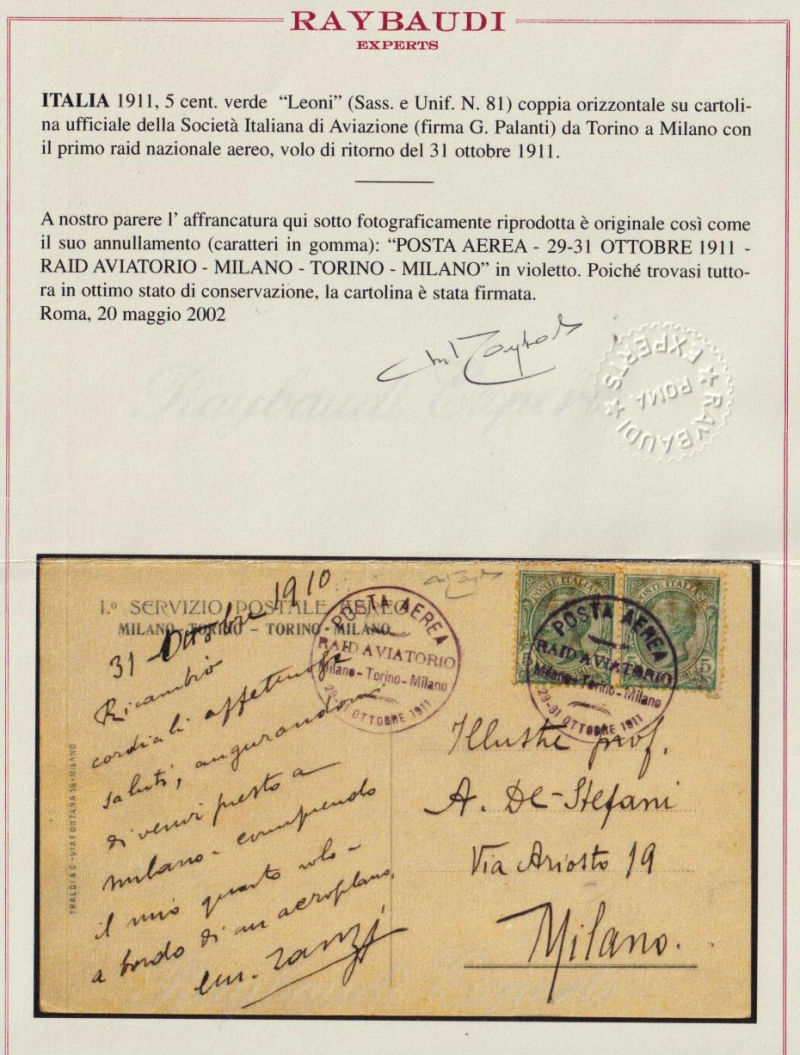 RAYBAUDI
EXPERTS
ITALIA 1911, 5 cent. verde “Leoni” (Sass. e Unif. N. 81) coppia orizzontale su cartoli-
na ufficiale della Società Italiana di Aviazione (firma G. Palanti) da Torino a Milano con
il primo raid nazionale aereo, volo di ritorno del 31 ottobre 1911.
A nostro parere l’ affrancatura qui sotto fotograficamente riprodotta è originale così come
il suo annullamento (caratteri in gomma): “POSTA AEREA - 29-31 OTTOBRE 1911 -
RAID AVIATORIO - MILANO - TORINO - MILANO” in violetto. Poiché trovasi tutto-
ra in ottimo stato di conservazione, la cartolina è stata firmata.
Roma, 20 maggio 2002
RAYBAUDI EXPERTS
ROMA
Raybaudi Experts
1.º SERVIZIO POSTALE AEREO
MILANO - TORINO - TORINO - MILANO
POSTA AEREA
RAID AVIATORIO
Milano - Torino - Milano
29-31 OTTOBRE 1911
POSTE ITALIANE
5
POSTE ITALIANE
5
POSTA AEREA
RAID AVIATORIO
Milano - Torino - Milano
29-31 OTTOBRE 1911
31 - Ottobre 1910
Ricambio
cordiali affettuosi
saluti, augurandomi
di venir presto a
Milano - compiendo
il mio quarto volo -
a bordo di un aeroplano.
Illustre prof.
A. De-Stefani
Via Ariosto 19
Milano.
TRALDI & C - VIA FONTANA 16 - MILANO